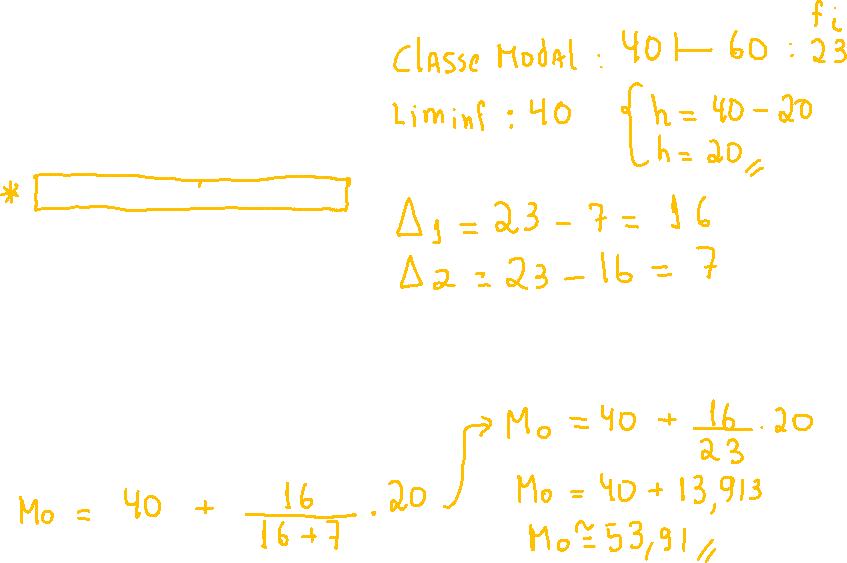 fi
Classe Modal : 40 ⊢ 60 : 23
Liminf : 40 { h = 40 - 20
h = 20 //
*
Δ1 = 23 - 7 = 16
Δ2 = 23 - 16 = 7
Mo = 40 + 16/23 . 20
Mo = 40 + 16/(16+7) . 20
Mo = 40 + 13,913
Mo ≅ 53,91 //